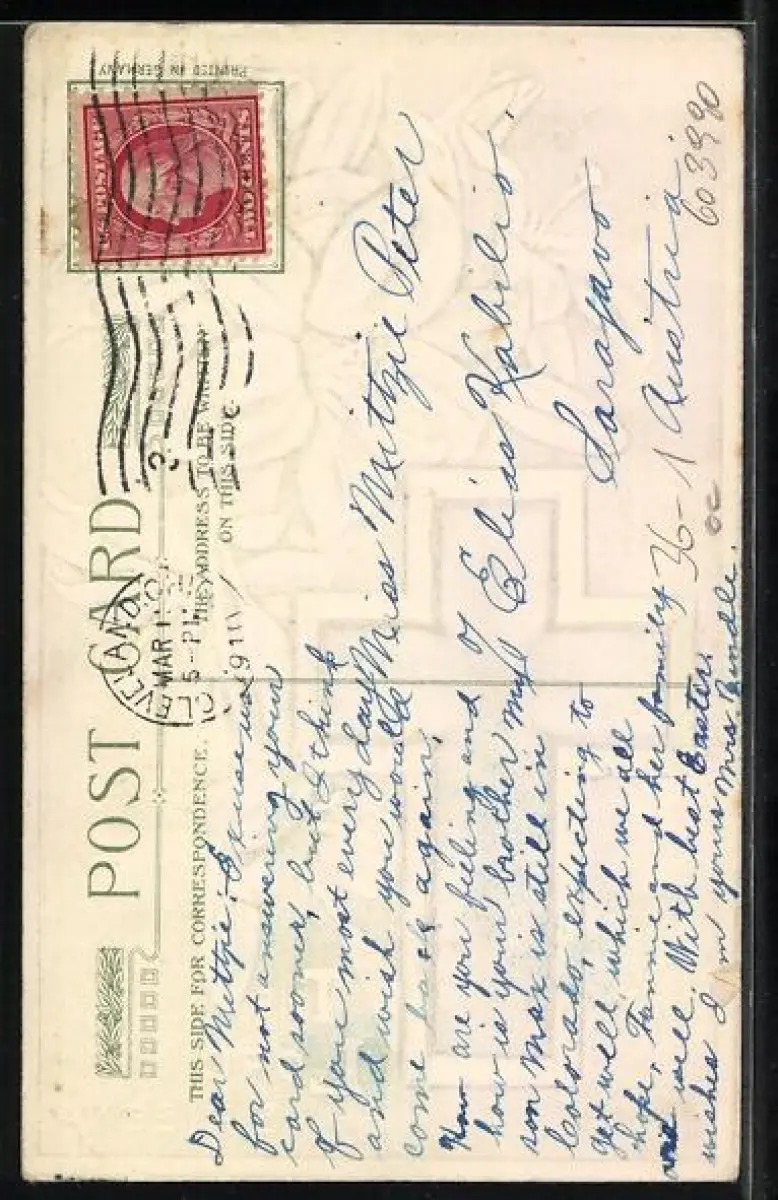 PRINTED IN GERMANY
POST CARD
THIS SIDE FOR CORRESPONDENCE.
THE ADDRESS TO BE WRITTEN
ON THIS SIDE.
U.S. POSTAGE
TWO CENTS
CLEVELAND, O.
MAR
5 - P
1911
Dear Mittzie; Excuse us
for not answering your
card sooner, but I think
of you most every day
and wish you would
come back again.
How are you feeling and
how is your brother my
son Max is still in
Colorado, expecting to
get well, which we all
hope, Fannie and her family
well. With best Easter
wishes I m yours Mrs.
Miss Meitzie Peter
% Eliss Kabilio.
Sarajavo
Austria
36-1
603990